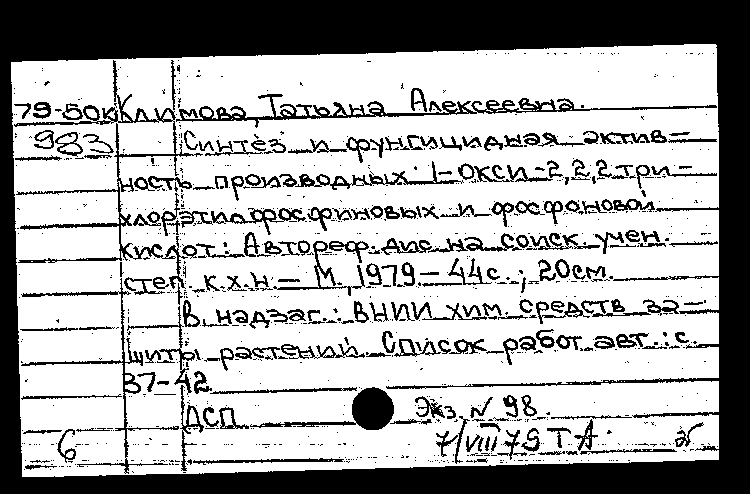 79-50к Климова, Татьяна Алексеевна.
983 Синтез и фунгицидная актив-
ность производных 1-окси-2,2,2 три-
хлорэтилфосфиновых и фосфоновой
кислот: Автореф. дис на соиск. учен.
степ. к.х.н. — М., 1979 — 44с.; 20см.
В. надзаг.: ВНИИ хим. средств за-
щиты растений. Список работ авт.: с.
37-42.
ДСП Экз. № 98.
6 7/VIII 79 Т А.